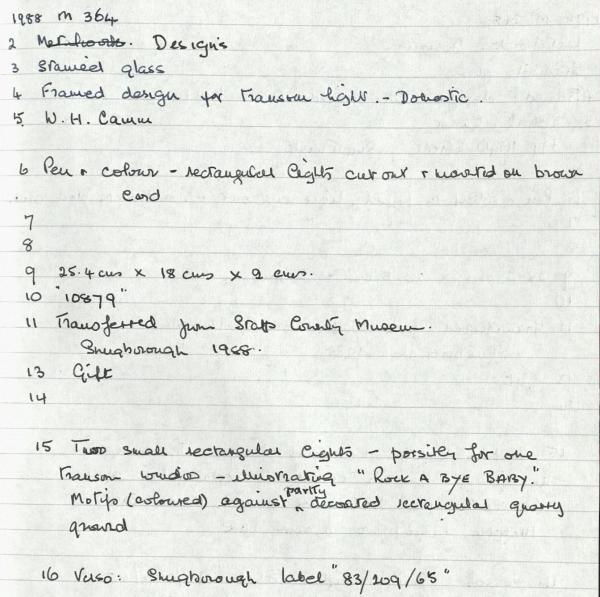 1988 m 364
2 Methods. Designs
3 Stained glass
4 Framed design for transom light. - Domestic.
5. W.H. Camm
6 Pen & colour - rectangular lights cut out & mounted on brown
card
7
8
9 25.4 cms x 18 cms x 2 cms.
10 "10879"
11 Transferred from Staffs County Museum.
Shugborough 1988.
13 Gift
14
15 Two small rectangular lights - possibly for one
transom window - illustrating "ROCK A BYE BABY."
Motifs (coloured) against partly decorated rectangular quarry
ground
16 Verso: Shugborough label "83/209/65"